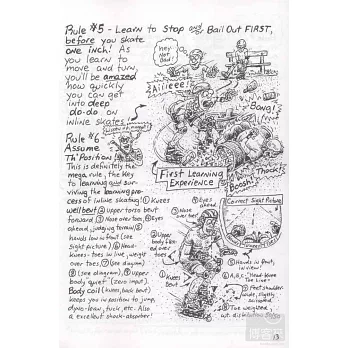 Rule #5 - Learn to Stop and/or Bail Out FIRST,
before you skate
one inch! As
you learn to
move and turn,
you'll be amazed
how quickly
you can get
into deep
do-do on
inline skates!
Hey Not Bad!
Aiiieee!
Bang!
Thock!
Boosh!
First Learning
Experience
Rule #6
Assume
Th' Position!
This is definitely the
mega rule, the key
to learning and sur-
viving the learning pro-
cess of inline skating! ① Knees
well bent ② Upper torso bent
forward ③ Nose over toes, ④ Eyes
ahead, judging terrain ⑤
hands low in front (see
sight picture) ⑥ Head-
knees-toes in line, weight
over toes, ⑦ (see diagram)
⑧ (see diagram), ⑨ Upper
body quiet (zero input).
Body coil (knees, back bent)
keeps you in position to jump,
dyno-lean, tuck, etc. Also
a excellent shock-absorber!
④ Eyes ahead
③ Nose over toes
② Upper body flexed over toes
① Knees Bent
Correct Sight Picture
⑤ Hands in front, in view!
⑦ Feet shoulder-wide, slightly scissored
13